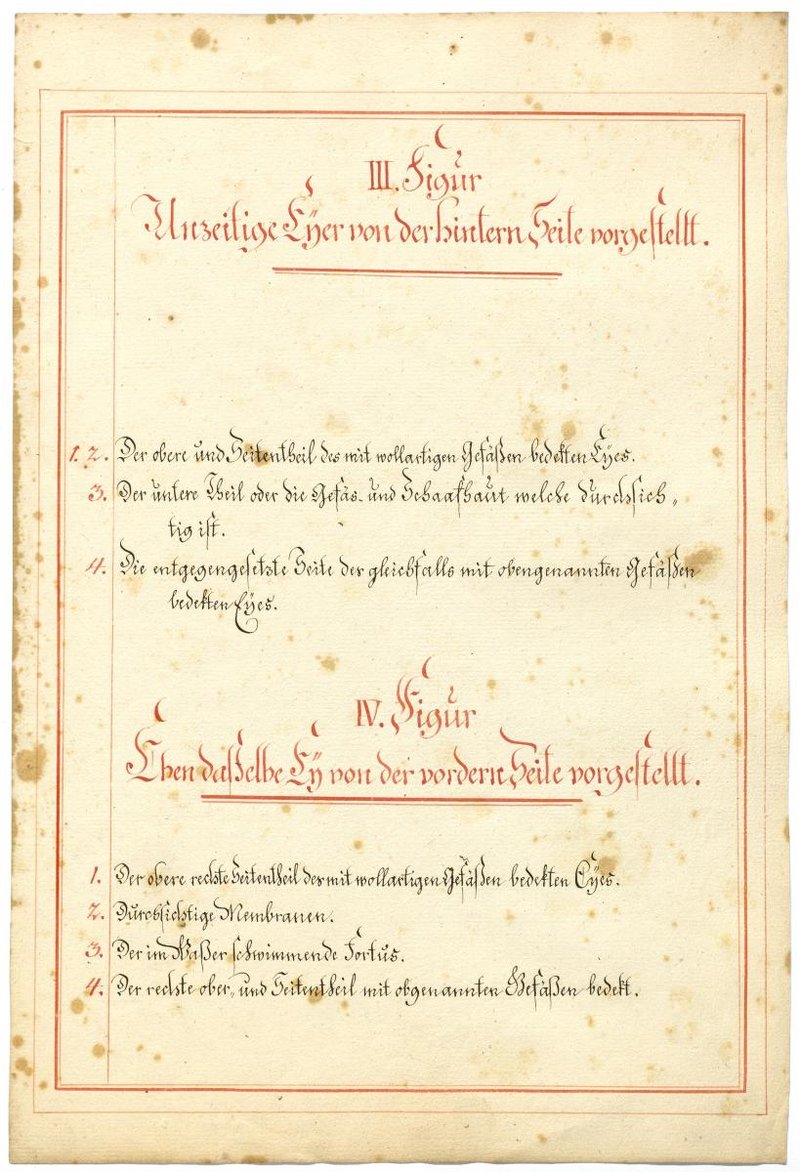 III. Figur
Unzeitige Eÿer von der hintern Seite vorgestellt.
1. 2. Der obere und Seitentheil des mit wollartigen Gefäßen bedekten Eÿes.
3. Der untere Theil oder die Gefäs- und Schaafhaut welche durchsich-
tig ist.
4. Die entgegengesetzte Seite des gleichfalls mit obengenannten Gefäßen
bedekten Eÿes.
IV. Figur
Eben daßelbe Eÿ von der vordern Seite vorgestellt.
1. Der obere rechte Seitentheil des mit wollartigen Gefäßen bedekten Eÿes.
2. Durchsichtige Membranen.
3. Der im Waßer schwimmende Foetus.
4. Der rechte ober- und Seitentheil mit obgenannten Gefäßen bedekt.